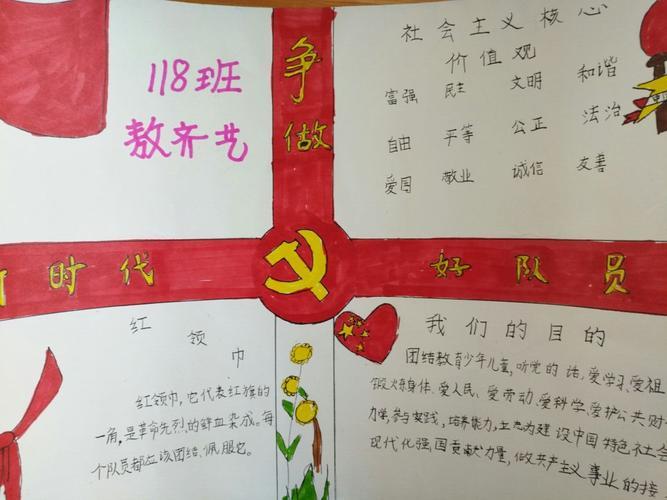 118班
敖齐艺
争
做
社会主义核心
价值观
富强 民主 文明 和谐
自由 平等 公正 法治
爱国 敬业 诚信 友善
时代 好队员
红领
巾
红领巾,它代表红旗的
一角,是革命先烈的鲜血染成。每
个队员都应该团结、佩服它。
我们的目的
团结教育少年儿童,听党的话、爱学习、爱祖
锻炼身体、爱人民、爱劳动、爱科学、爱护公共财
力学,参与实践,培养能力,立志为建设中国特色社会
现代化强国贡献力量,做共产主义事业的接